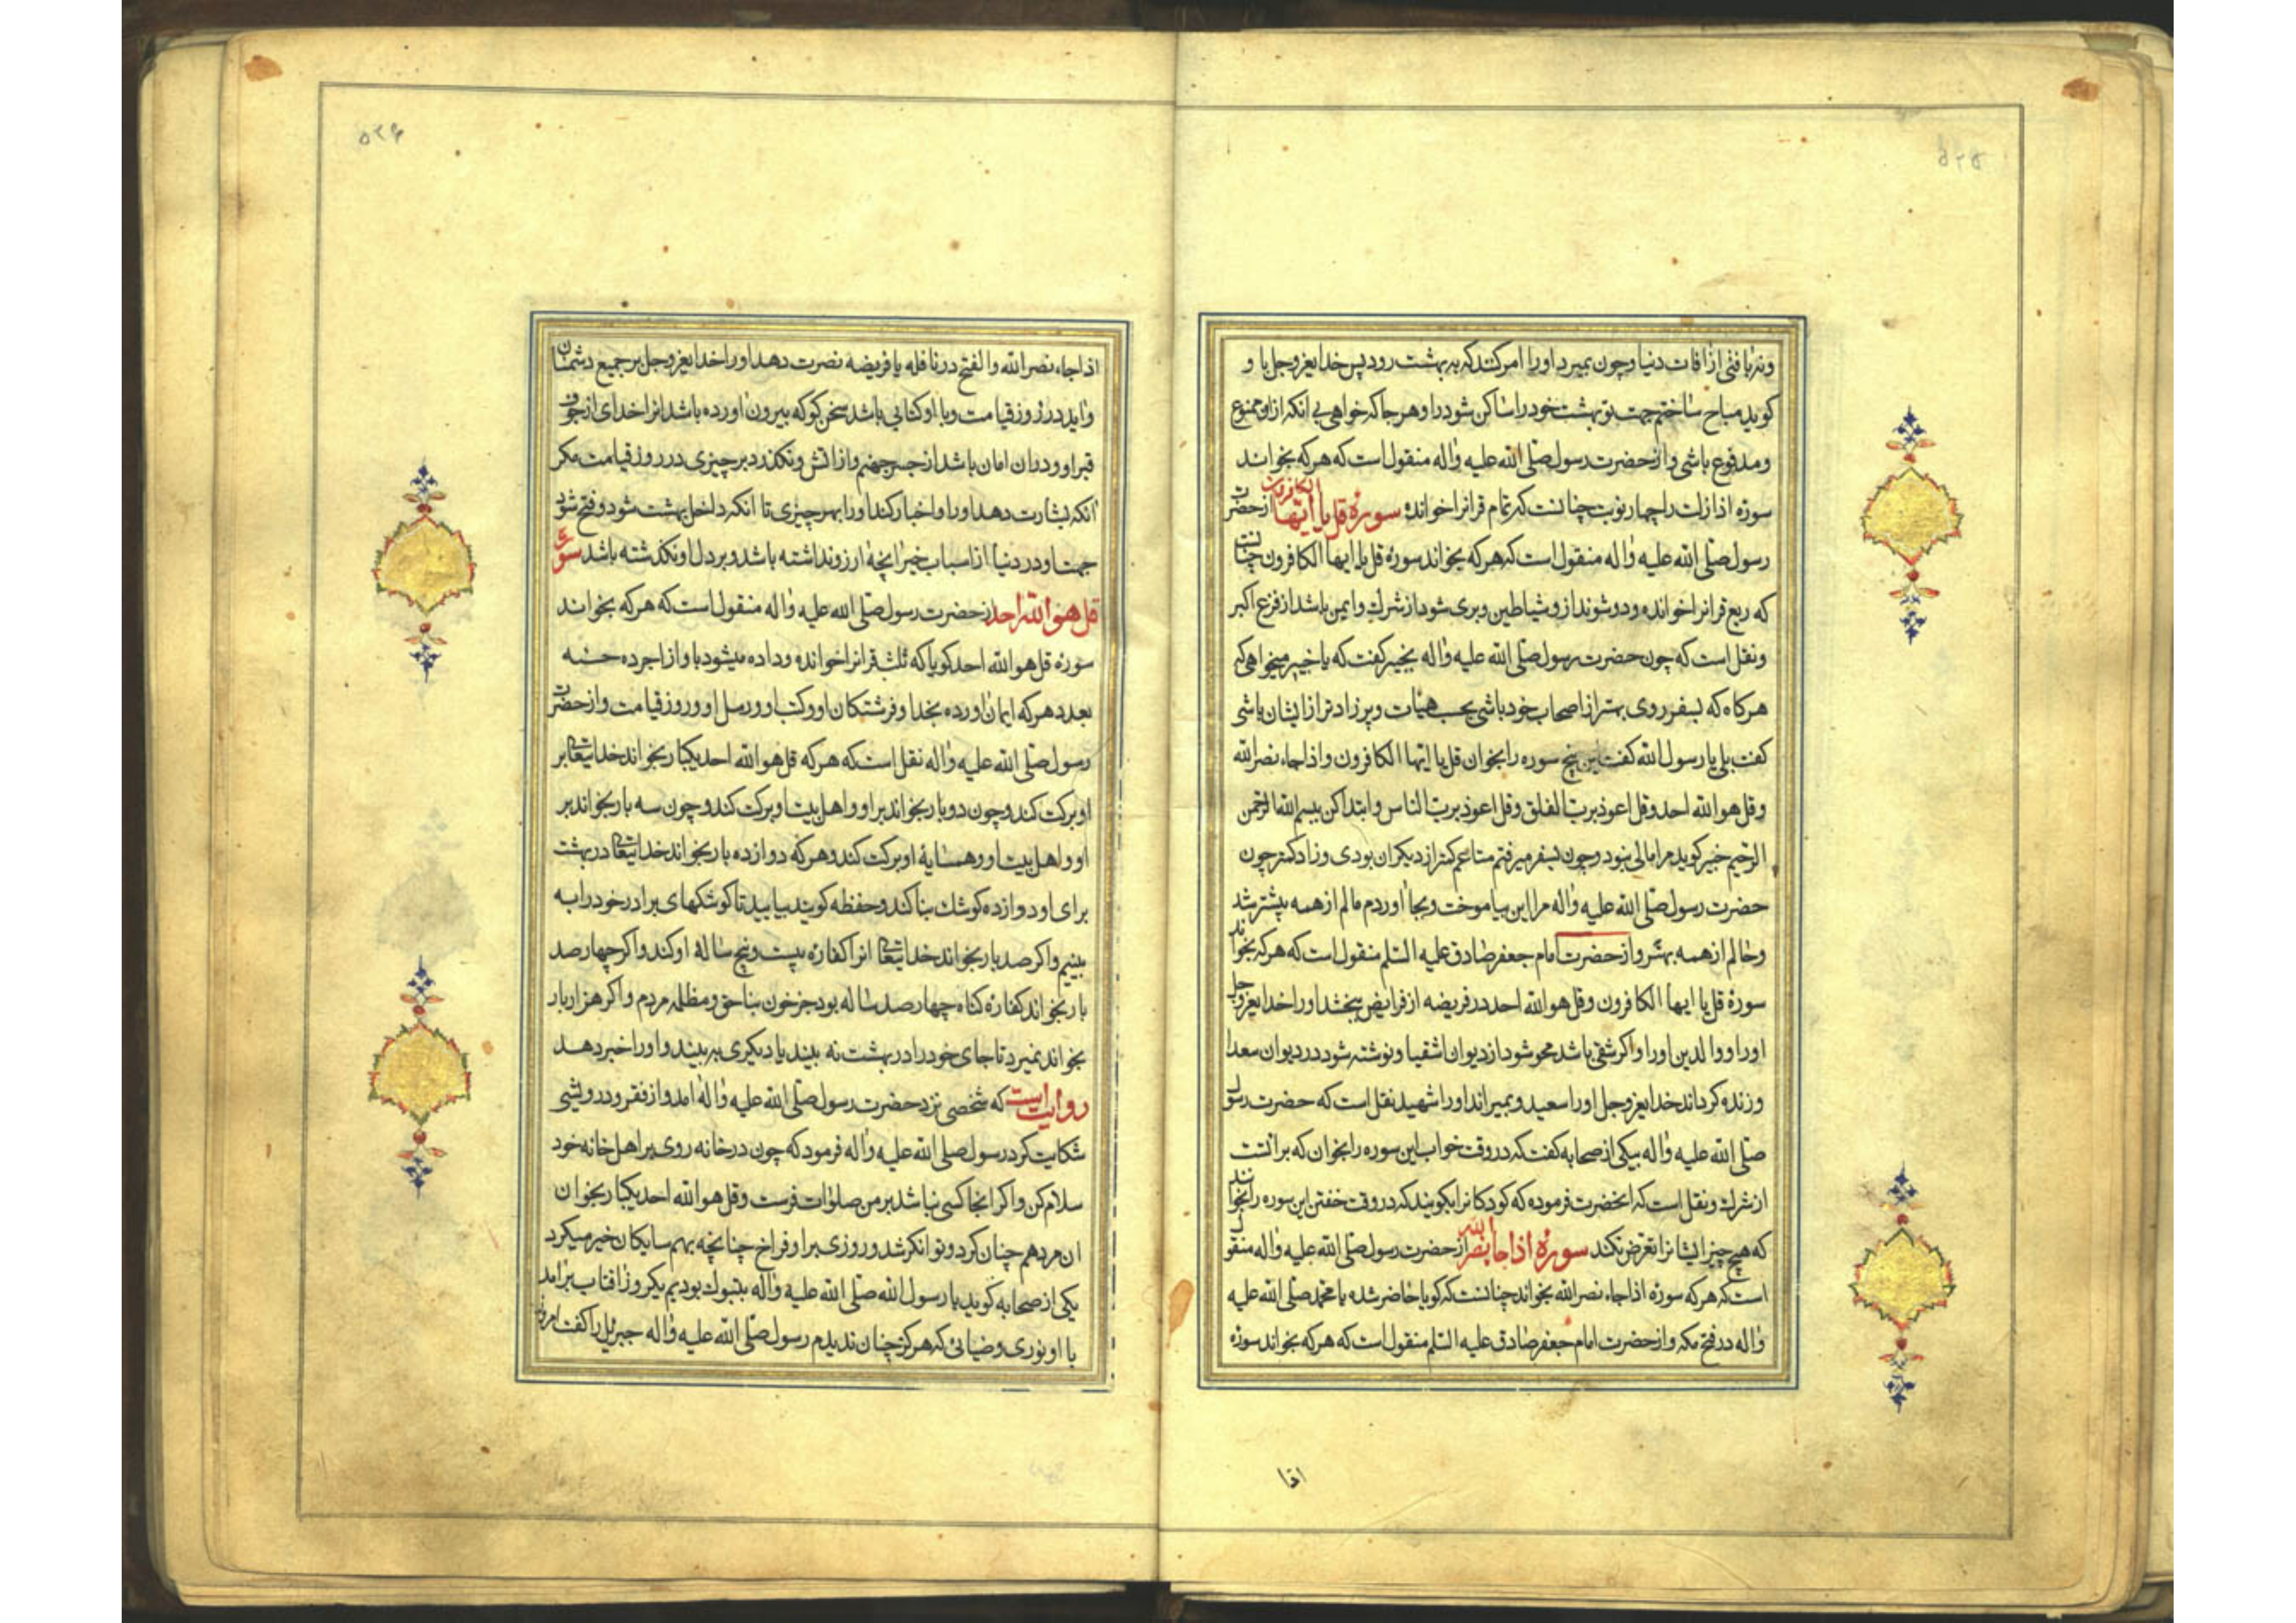 ۵۲۵
ونه یا فتی از افات دنیا و چون بمیرد او را امر کنند که به بهشت رود پس خدایعزوجل با و
کوید مباح ساختم جهت تو بهشت خود را ساکن شو در او هر جا که خواهی بی انکه از او ممنوع
و مدفوع باشی و از حضرت رسول صلی الله علیه واله منقول است که هر که بخواند
سورهٔ اذا زلت را چهار نوبت چنانست که تمام قرانرا خوانده سورهٔ قل یا ایها الکافرون از حضرت
رسول صلی الله علیه واله منقول است که هر که بخواند سورهٔ قل یا ایها الکافرون چنانست
که ربع قرانرا خوانده و دور شوند از و شیاطین و بری شود از شرک و ایمن باشد از فزع اکبر
ونقل است که چون حضرت رسول صلی الله علیه واله بخبیر کفت که یا خبیر میخواهی که
هرکاه که بسفر روی بهتر از اصحاب خود باشی بحسب هیأت و پر زاد تر از ایشان باشی
کفت بلی یا رسول الله کفت این پنج سوره را بخوان قل یا ایها الکافرون و اذا جاء نصر الله
وقل هو الله احد وقل اعوذ برب الفلق وقل اعوذ برب الناس و ابتدا کن ببسم الله الرحمن
الرحیم خبیر کوید مرا مالی نبود و چون بسفر میرفتم متاعم کمتر از دیکران بودی و زاد کمتر چون
حضرت رسول صلی الله علیه واله مرا این بیاموخت و بجا اوردم مالم از همه بیشتر شد
وحالم از همه بهتر و از حضرت امام جعفر صادق علیه السلم منقول است که هر که بخواند
سورهٔ قل یا ایها الکافرون وقل هو الله احد در فریضه از فرایض ببخشد او را خدایعزوجل
او را و والدین او را و اکر شقی باشد محو شود از دیوان اشقیا و نوشته شود در دیوان سعدا
و زنده کرداند خدایعزوجل او را سعید و بمیراند او را شهید نقل است که حضرت رسول
صلی الله علیه واله بیکی از صحابه کفت که در وقت خواب این سوره را بخوان که براتست
از شرک ونقل است که انحضرت فرموده که کودکانرا بکویند که در وقت خفتن این سوره را بخوانند
که هیچ چیز ایشانرا تعرض نکند سورهٔ اذا جاء نصر الله از حضرت رسول صلی الله علیه واله منقول
است که هر که سورهٔ اذا جاء نصر الله بخواند چنانست که کویا حاضر شده با محمد صلی الله علیه
واله در فتح مکه و از حضرت امام جعفر صادق علیه السلم منقول است که هر که بخواند سورهٔ
اذا
۵۲۶
اذا جاء نصر الله والفتح در نافله یا فریضه نصرت دهد او را خدایعزوجل بر جمیع دشمنان
و اید در روز قیامت و با او کتابی باشد سخن کو که بیرون اورده باشد انرا خدای از جوف
قبر او و در ان امان باشد از جسر جهنم و از اتش و نکذرد بر چیزی در روز قیامت مکر
انکه بشارت دهد او را و اخبار کند او را بهر چیزی تا انکه داخل بهشت شود و فتح شود
جهت او در دنیا از اسباب خیر انچه ارزو نداشته باشد و بر دل او نکذشته باشد سورهٔ
قل هو الله احد از حضرت رسول صلی الله علیه واله منقول است که هر که بخواند
سورهٔ قل هو الله احد کویا که ثلث قرانرا خوانده و داده میشود با و از اجر ده حسنه
بعدد هر که ایمان اورده بخدا و فرشتکان او و کتب او و رسل او و روز قیامت و از حضرت
رسول صلی الله علیه واله نقل است که هر که قل هو الله احد یکبار بخواند خدایتعالی بر
او برکت کند و چون دو بار بخواند بر او و اهل بیت او برکت کند و چون سه بار بخواند بر
او و اهل بیت او و همسایهٔ او برکت کند و هر که دوازده بار بخواند خدایتعالی در بهشت
برای او دوازده کوشک بنا کند و حفظه کویند بیایید تا کوشکهای برادر خود را به
بینیم و اکر صد بار بخواند خدایتعالی انرا کفارهٔ بیست و پنج سالهٔ او کند و اکر چهار صد
بار بخواند کفارهٔ کناه چهار صد ساله بود جز خون بناحق و مظلمهٔ مردم و اکر هزار بار
بخواند نمیرد تا جای خود را در بهشت نه بیند یا دیکری به بیند و او را خبر دهد
روایت است که شخصی نزد حضرت رسول صلی الله علیه واله امد و از فقر و درویشی
شکایت کرد رسول صلی الله علیه واله فرمود که چون در خانه روی بر اهل خانه خود
سلام کن و اکر انجا کسی نباشد بر من صلوات فرست و قل هو الله احد یکبار بخوان
ان مرد هم چنان کرد و توانکر شد و روزی بر او فراخ چنانچه بهمسایکان خیر میکرد
یکی از صحابه کوید با رسول الله صلی الله علیه واله بتبوک بودیم یکروز افتاب برامد
با او نوری و ضیائی که هرکز چنان ندیدم رسول صلی الله علیه واله جبرئیل را کفت امروز